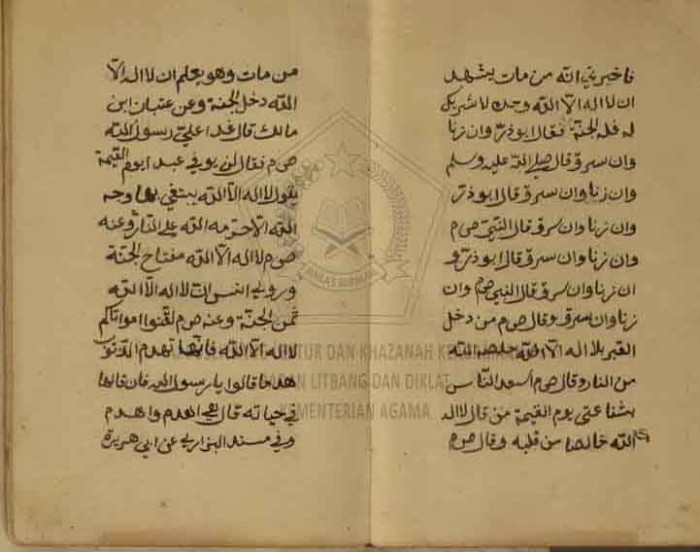 فاخبرني انه من مات يشهد
ان لا اله الا الله وحده لا شريك
له فله الجنة فقال ابوذر وان زنا
وان سرق قال صلى الله عليه وسلم
وان زنا وان سرق قال ابوذر
وان زنا وان سرق قال النبي ص م
وان زنا وان سرق قال ابوذر و
ان زنا وان سرق قال النبي ص م وان
زنا وان سرق وقال ص م من دخل
القبر بلا اله الا الله خلصه الله
من النار وقال ص م اسعد الناس
بشفاعتي يوم القيمة من قال لا اله
الا الله خالصا من قلبه وقال ص م
من مات وهو يعلم ان لا اله الا
الله دخل الجنة وعن عتبان ابن
مالك قال غدا علي رسول الله
ص م فقال لن يوفي عبد ايوم القيمة
يقول لا اله الا الله يبتغي بها وجه
الله الا حرمه الله على النار وعنه
ص م لا اله الا الله مفتاح الجنة
وروي انس ان لا اله الا الله
ثمن الجنة وعنه ص م لقنوا امواتكم
لا اله الا الله فانها تهدم الذنوب
هدما قالوا يا رسول الله فان قالها
في حياته قال هي اهدم واهدم
وفي مسند البزار عن ابي هريرة
BALAS BERAMAL
LEKTUR DAN KHAZANAH
BADAN LITBANG DAN DIKLAT
KEMENTERIAN AGAMA